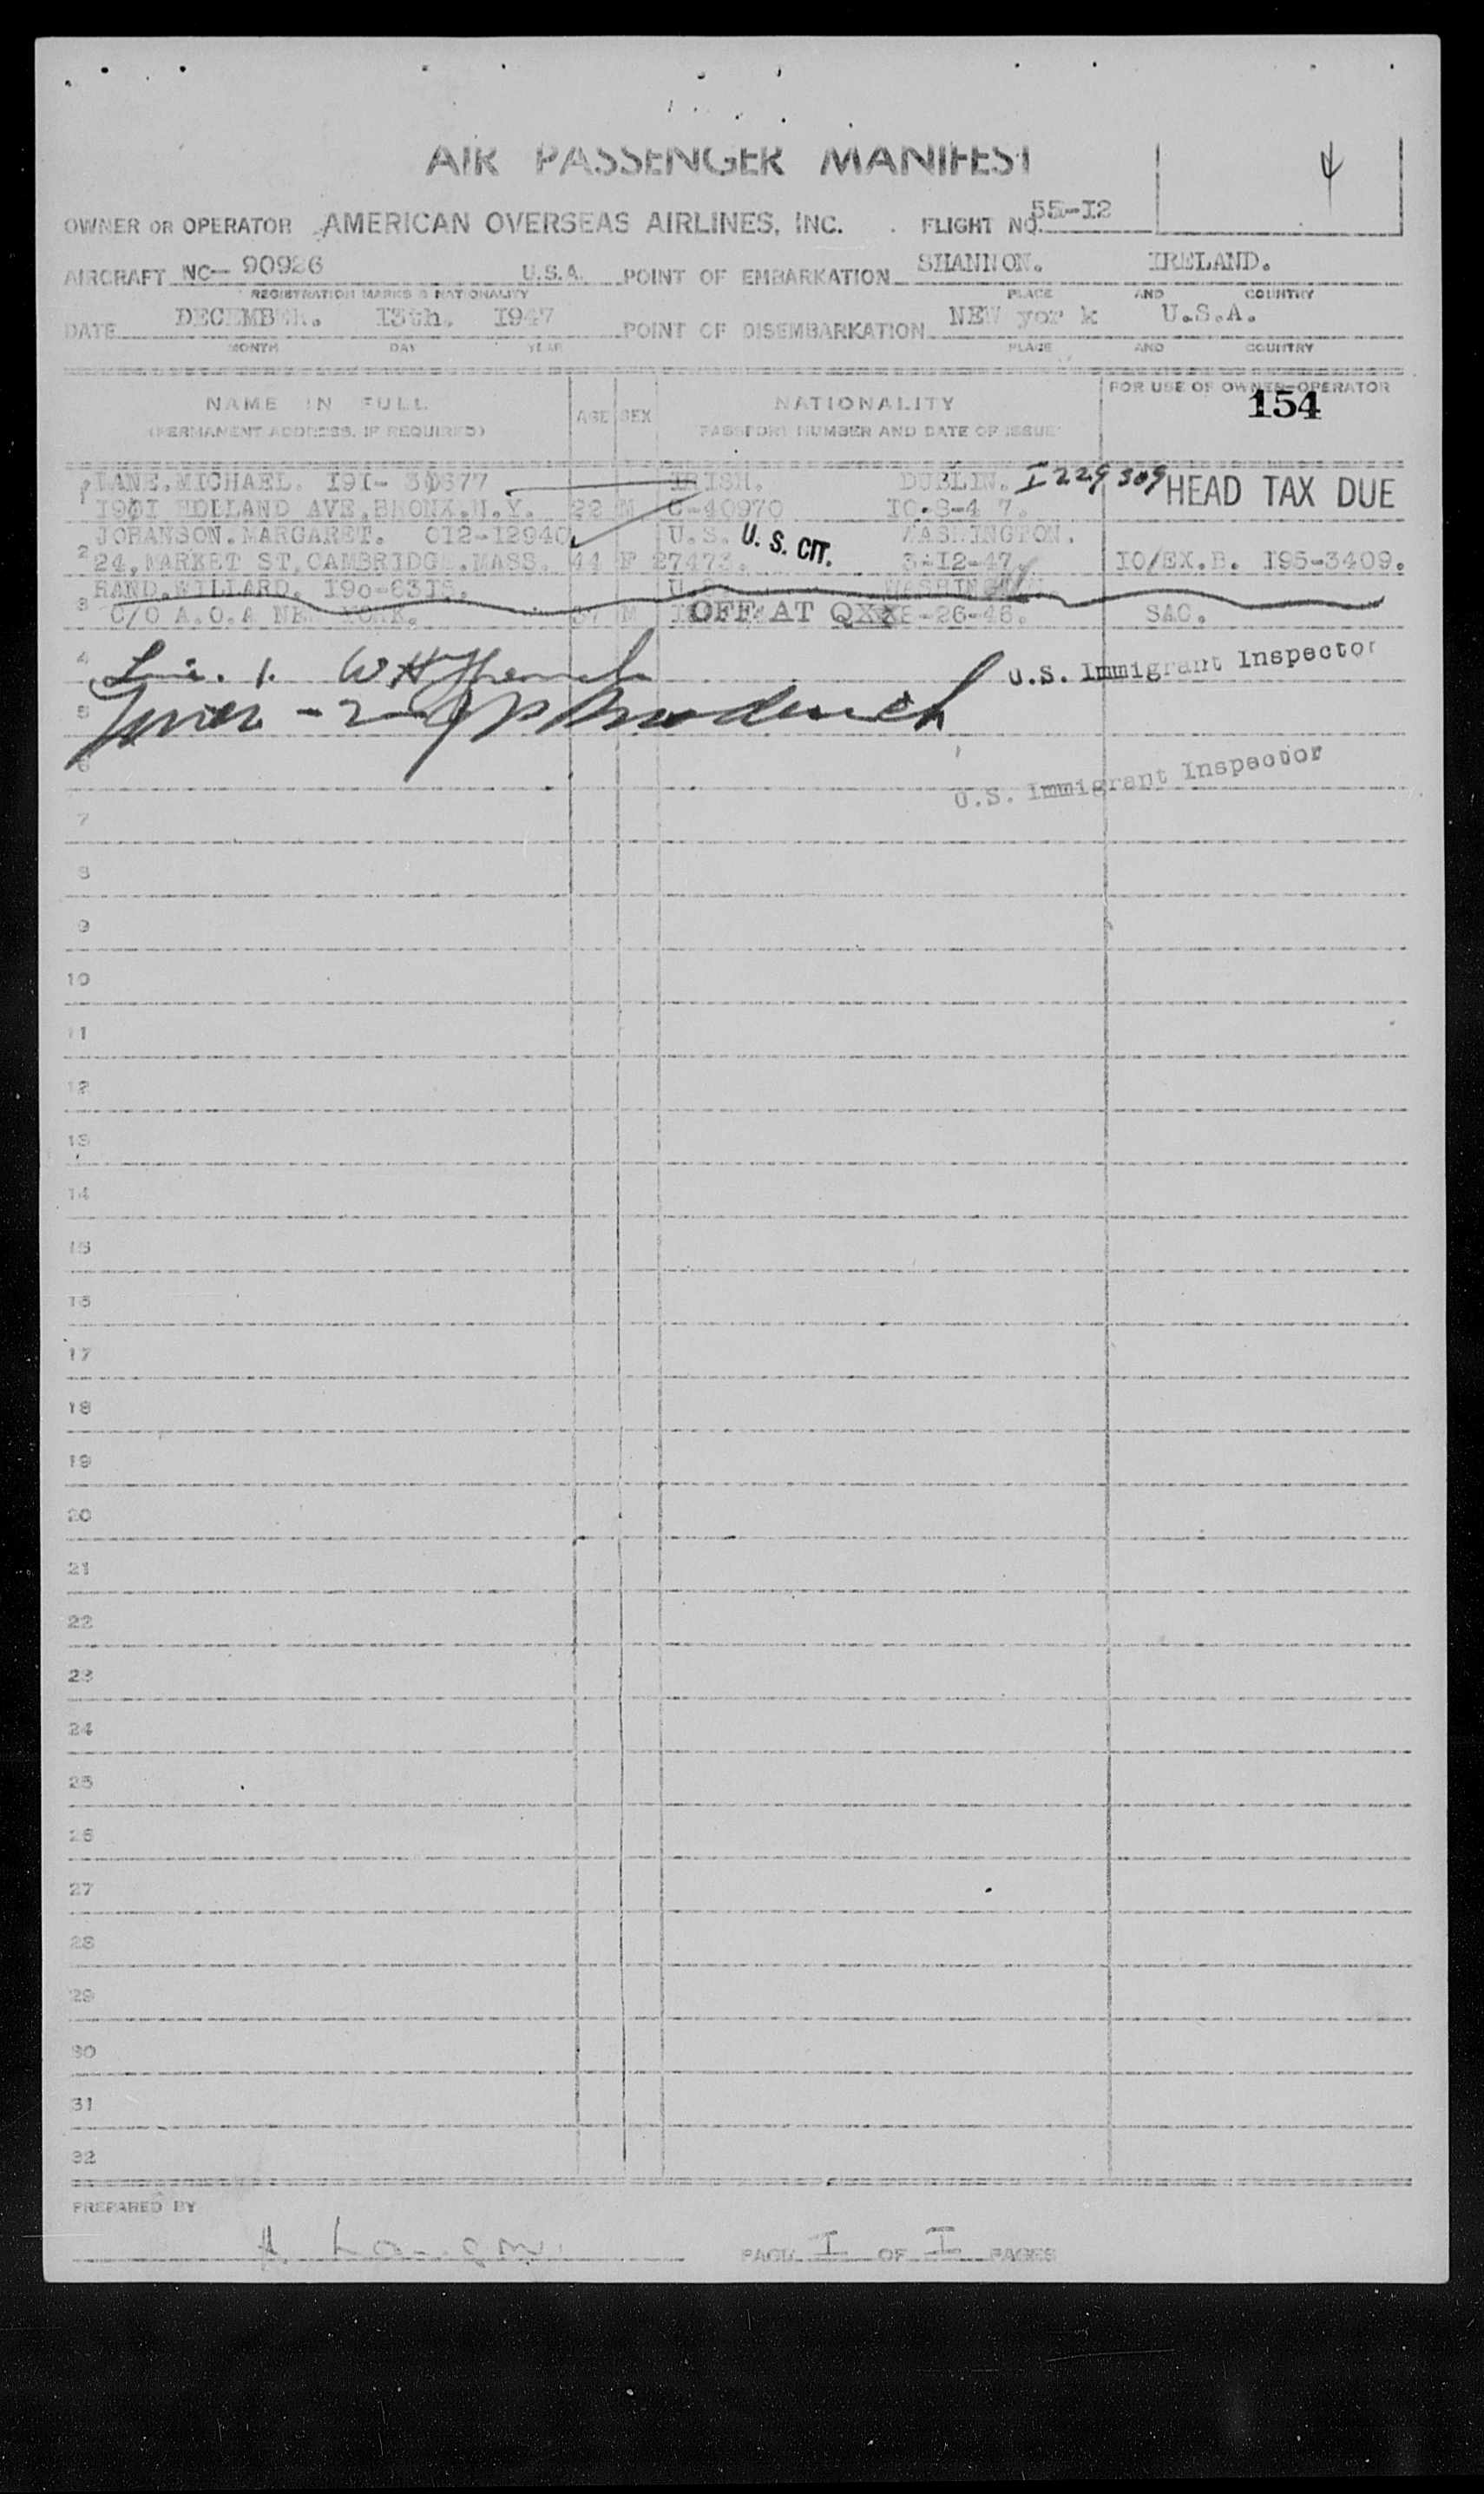 AIR PASSENGER MANIFEST
4
OWNER OR OPERATOR AMERICAN OVERSEAS AIRLINES, INC. FLIGHT NO. 55-I2
AIRCRAFT NC- 90926 U.S.A. POINT OF EMBARKATION SHANNON. IRELAND.
REGISTRATION MARKS & NATIONALITY PLACE AND COUNTRY
DATE DECEMBER. I3th. I947 POINT OF DISEMBARKATION NEW yor k U.S.A.
MONTH DAY YEAR PLACE AND COUNTRY
NAME IN FULL AGE SEX NATIONALITY FOR USE OF OWNER-OPERATOR
(PERMANENT ADDRESS, IF REQUIRED) PASSPORT NUMBER AND DATE OF ISSUE 154
1 LANE.MICHAEL. I9I- IRISH. DUBLIN. I229309 HEAD TAX DUE
HOLLAND AVE.BRONX.N.Y. 22 M C-40970 IO-8-4 7.
2 JOHANSON.MARGARET. 0I2-I2940 U.S. U. S. CIT. WASHINGTON.
24,MARKET ST,CAMBRIDGE.MASS. 44 F 27473. 3-I2-47. IO/EX.B. I95-3409.
3 RAND.WILLARD. I9o-63I5. U.S. WASHINGTON.
C/O A.O.A NEW YORK. M OFF AT QX -26-46. SAC.
4 U.S. Immigrant Inspector
5
6 U.S. Immigrant Inspector
7
8
9
10
11
12
13
14
15
16
17
18
19
20
21
22
23
24
25
26
27
28
29
30
31
32
PREPARED BY
PAGE I OF I PAGES